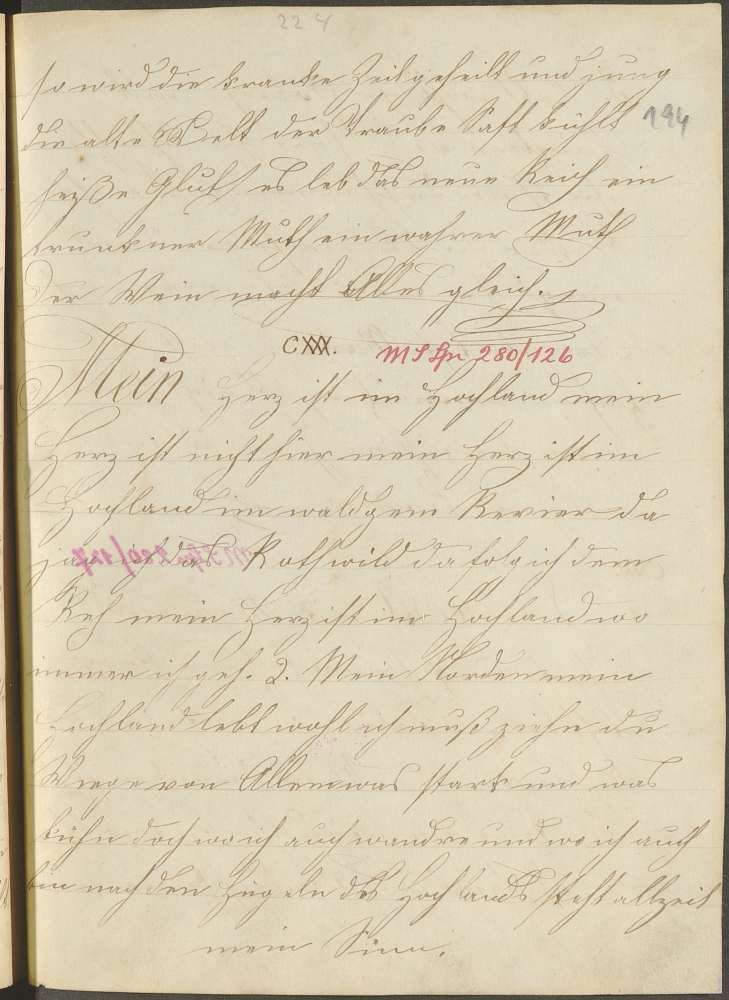 224
so wird die kranke Zeit geheilt und jung
die alte Welt der Traube Saft kühlt 194
heiße Gluth es leb das neue Reich ein
trunkner Muth ein wahrer Muth
Der Wein macht Alles gleich.
CXXX. MS Lpr 280/126
Mein Herz ist im Hochland mein
Herz ist nicht hier mein Herz ist im
Hochland im waldgem Revier da
jag ich das Rothwild da folg ich dem
Reh mein Herz ist im Hochland wo
immer ich geh. 2. Mein Norden mein
Hochland lebt wohl ich muß ziehn du
Wiege von Allem was stark und was
kühn doch wo ich auch wandre und wo ich auch
bin nach den Hügeln des Hochlands steht allzeit
mein Sinn.